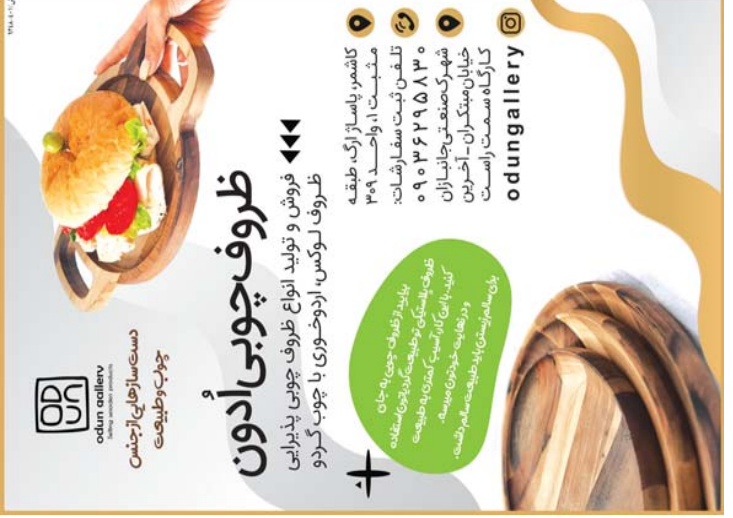 ODUN
odun gallery
Selling wooden products
دست‌سازهایی از جنس
چوب و طبیعت
ظروف چوبی اُدون
فروش و تولید انواع ظروف چوبی پذیرایی
ظروف لوکس، اردوخوری با چوب گردو
بیایید از ظروف چوبی به جای
ظروف پلاستیکی تو طبیعت گردیاتون استفاده
کنید. با این کار آسیب کمتری به طبیعت
و در نهایت خودتون میرسه.
برای سالم زیستن باید طبیعت سالم داشت.
کاشمر، پاساژ ارگ، طبقه
مثبت ۱، واحد ۳۰۹
تلفن ثبت سفارشات:
۰۹۰۳۶۲۹۵۸۳۰
شهرک صنعتی جانبازان
خیابان مبتکران - آخرین
کارگاه سمت راست
odungallery